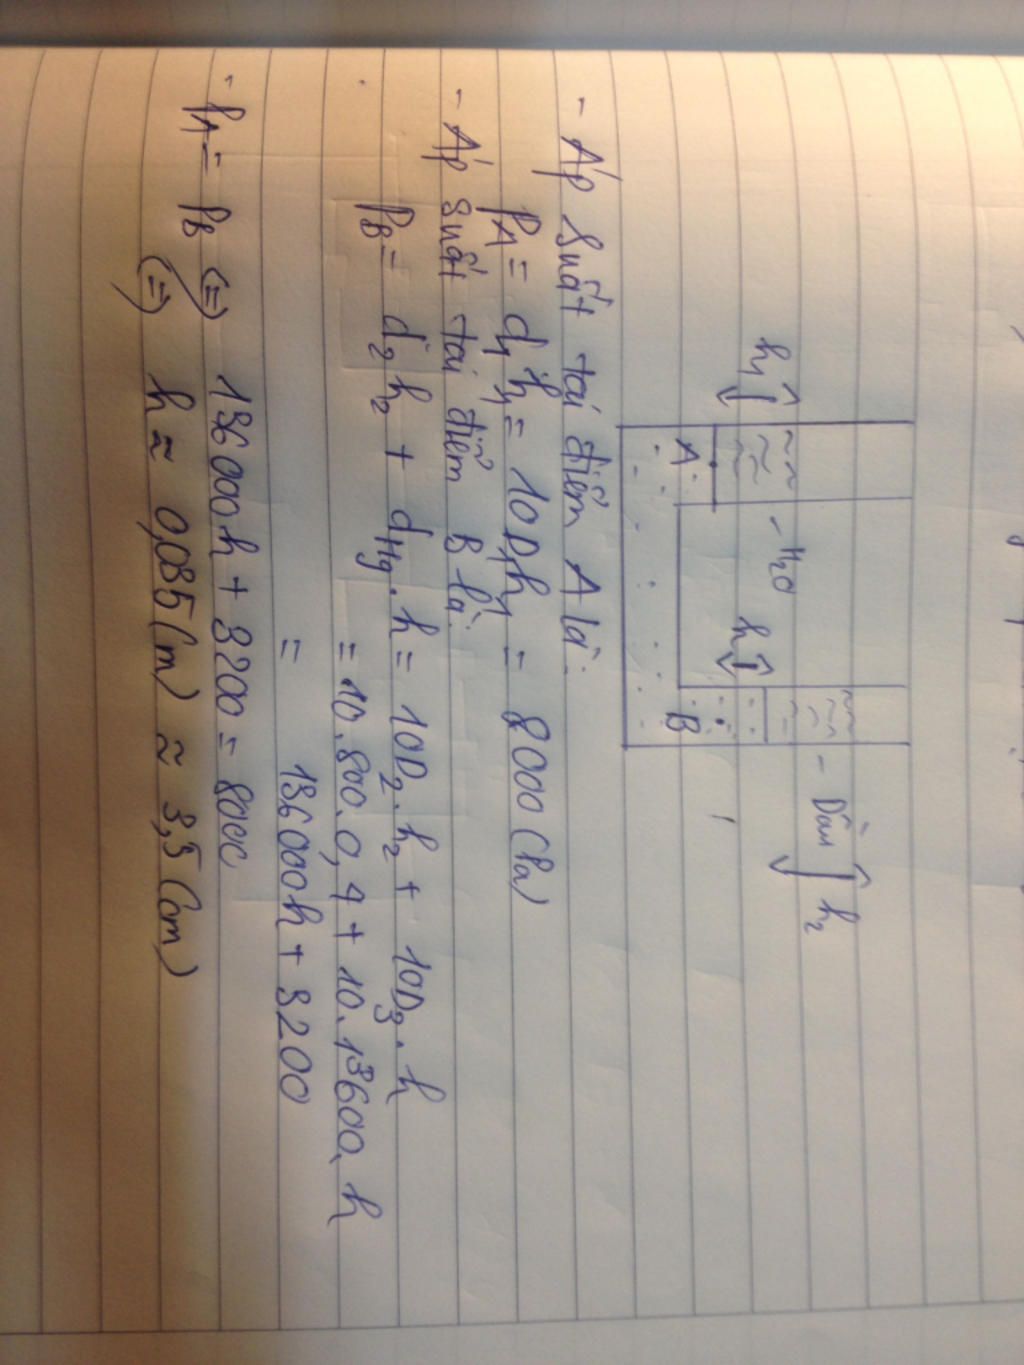 h₁ - H₂O h - Dầu h₂
A B
- Áp suất tại điểm A là:
pA = d₁h₁ = 10D₁h₁ = 8000 (Pa)
- Áp suất tại điểm B là:
pB = d₂h₂ + dHg.h = 10D₂.h₂ + 10D₃.h
= 10.800.0,4 + 10.13600.h
= 136000h + 3200
- pA = pB (=) 136000h + 3200 = 8000
(=) h ≈ 0,035 (m) ≈ 3,5 (cm)